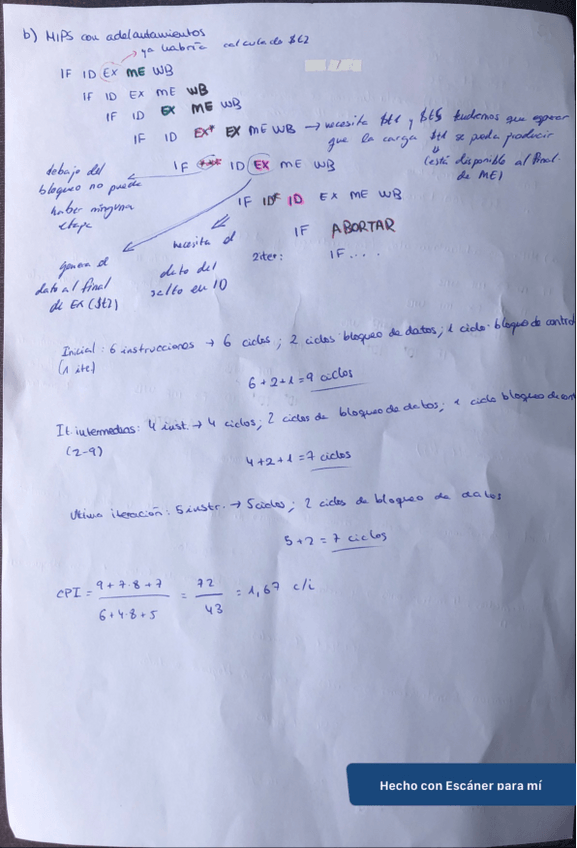 b) MIPS con adelantamientos
→ ya habría calculado $t2
IF ID EX ME WB
IF ID EX ME WB
IF ID EX ME WB
IF ID EX* EX ME WB → necesita $t1 y $t5 tendremos que esperar
que la carga $t1 se pueda producir
(está disponible al final
de ME)
IF *** ID EX ME WB
debajo del
bloqueo no puede
haber ninguna
etapa
IF ID* ID EX ME WB
IF ABORTAR
2iter: IF....
genera el
dato al final
de EX ($t2)
necesita el
dato del
salto en ID
Inicial: 6 instrucciones → 6 ciclos; 2 ciclos bloqueo de datos; 1 ciclo bloqueo de control
(1 ite)
6+2+1=9 ciclos
It. intermedias: 4 inst. → 4 ciclos; 2 ciclos de bloqueo de datos; 1 ciclo bloqueo de cont
(2-9)
4+2+1=7 ciclos
Última iteración: 5 instr. → 5 ciclos; 2 ciclos de bloqueo de datos
5+2=7 ciclos
CPI = 9+7·8+7 / 6+4·8+5 = 72 / 43 = 1,67 c/i
Hecho con Escáner para mí